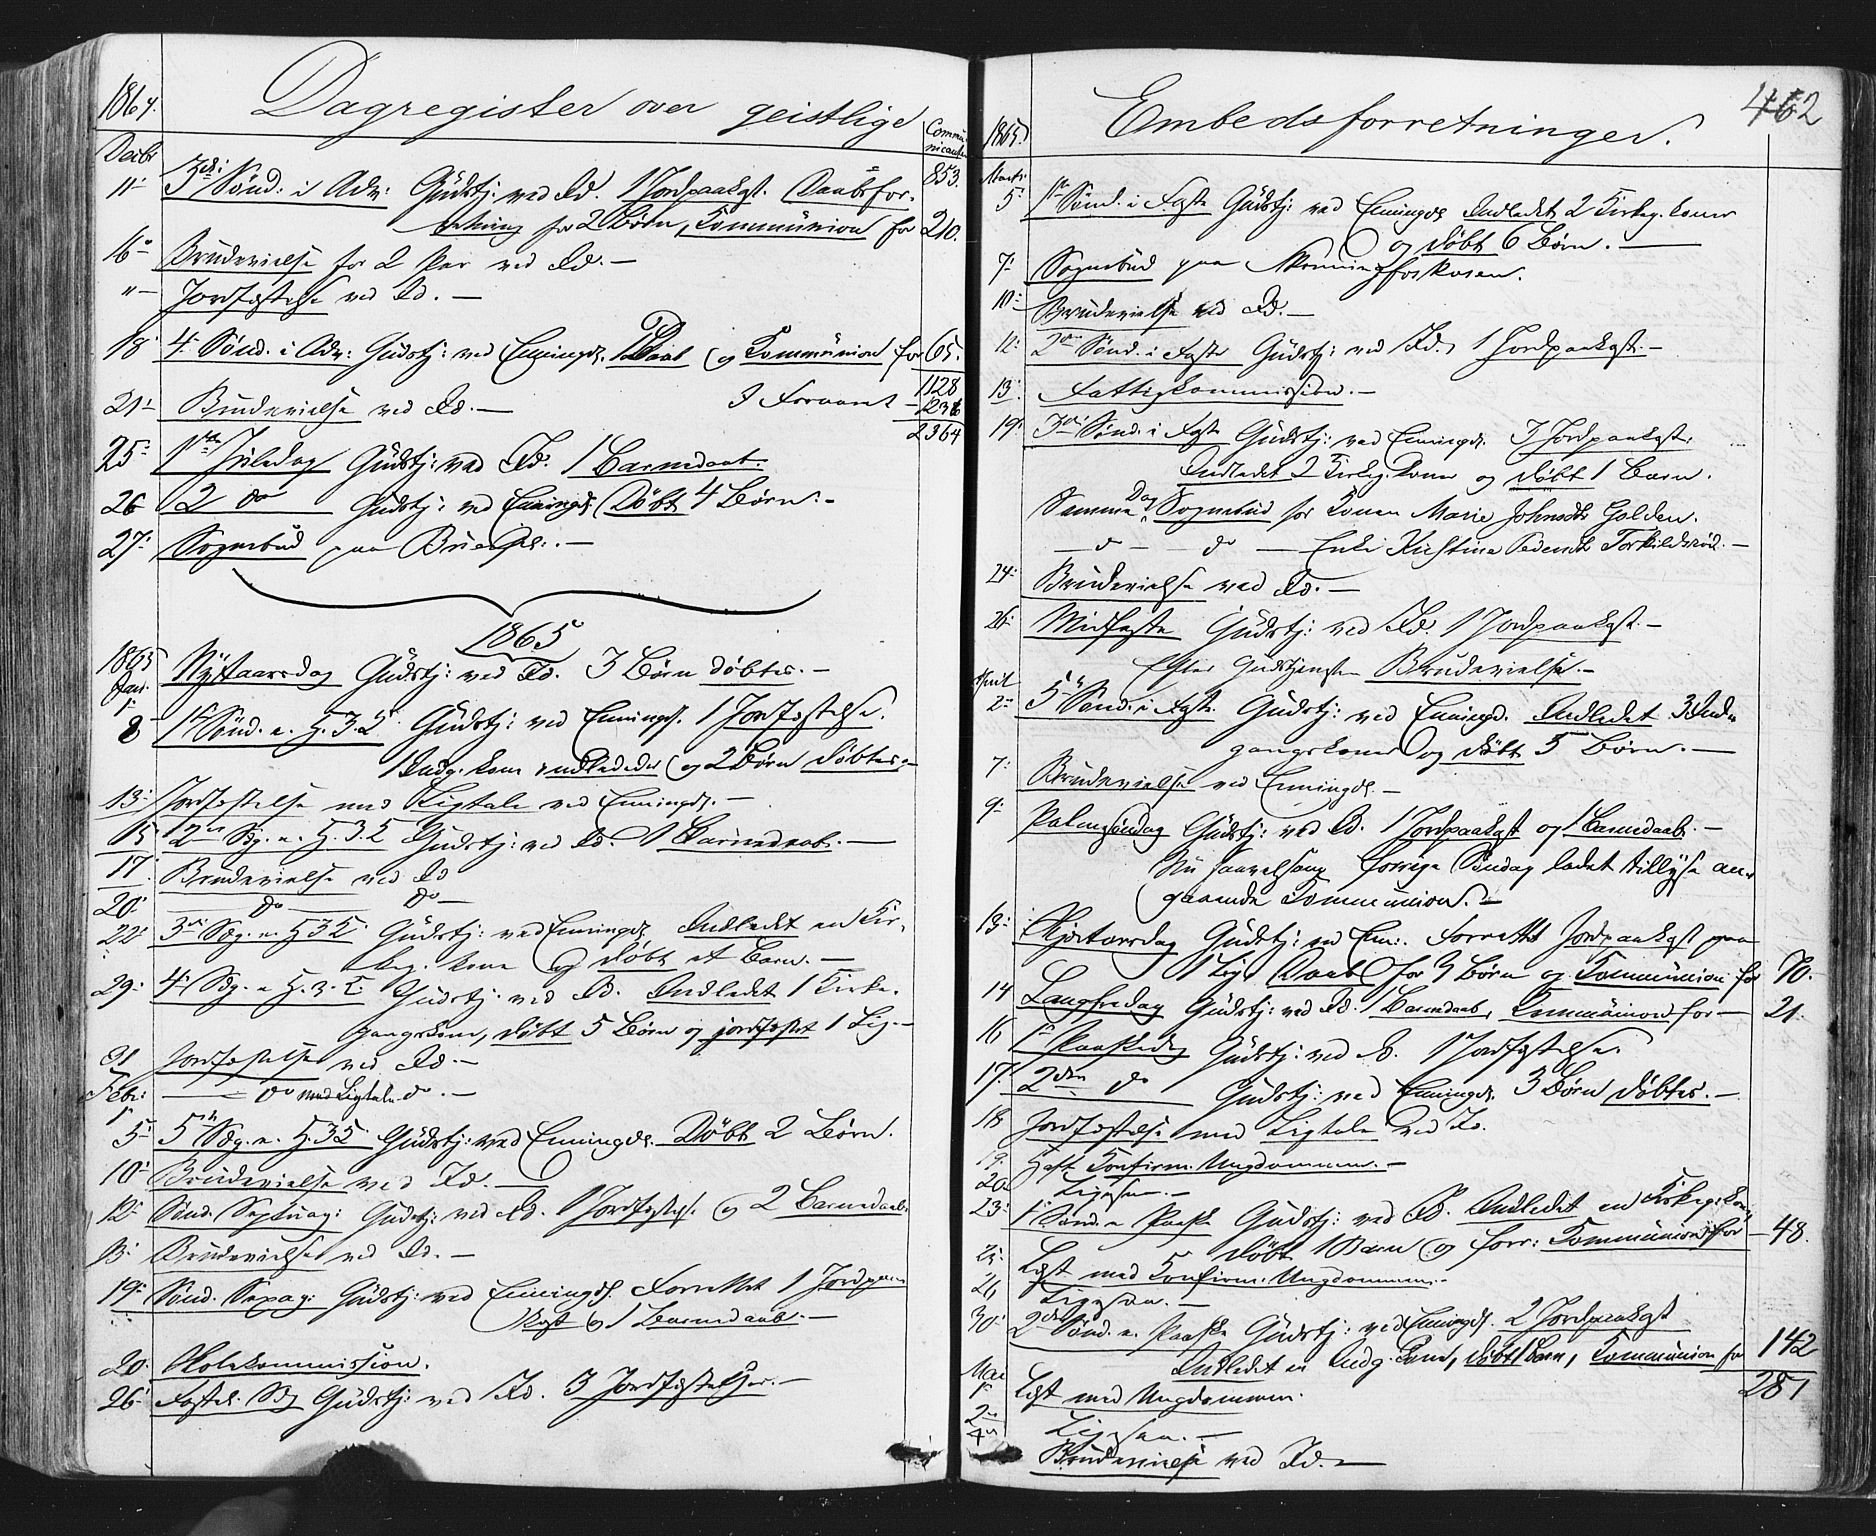 1864. Dagregister over geistlige
Communicanter
Decbr 853.
11 3die Sønd: i Adv: Gudstj: ved Id. 1 Jordpaakast. Daabsfor-
retning for 2 Børn, Communion for 210.
16 Brudevielse for 2 Par ved Id. —
" Jordfæstelse ved Id. —
18 4. Sønd. i Adv: Gudstj: ved Enningd. 1 Daab og Communion for 65.
1128
21 Brudevielse ved Id. — I Foraaret 1236
2364
25 1ste Juledag Gudstj: ved Id. 1 Barnedaab.
26 2 do Gudstj: ved Enningd. Døbt 4 Børn. —
27 Sognebud paa —
1865
1865 Nytaarsdag Gudstj: ved Id. 3 Børn døbtes. —
Jan. 1
8 1ste Sønd. e. H. 3. K. Gudstj: ved Enningd. 1 Jordfæstelse.
1 Indg. kone indlededes og 2 Børn døbtes. —
13 Jordfæstelse med Ligtale ved Enningd. —
15 2den Sg. e. H. 3. K. Gudstj: ved Id. 1 Barnedaab. —
17 Brudevielse ved Id
20 — do — do —
22 3die Sg. e. H. 3 K. Gudstj: ved Enningd. Indledet en Kir-
keg. kone og døbt et Barn. —
29 4. Sg. e. H. 3. K. Gudstj. ved Id. Indledet 1 Kirke-
gangskone, døbt 5 Børn og jordfæstet 1 Lig. —
31 Jordfæstelse ved Id. —
Febr: 1 — do med Ligtale do. —
5 5te Sg. e. H. 3 K. Gudstj: ved Enningd. Døbt 2 Børn.
10 Brudevielse ved Id. —
12 Sønd. Septuag: Gudstj: ved Id. 1 Jordfæstelse og 2 Barnedaab.
13 Brudevielse ved Id. —
19 Sønd. Sexag: Gudstj: ved Enningd. Forrettet 1 Jordpaa-
kast og 1 Barnedaab. —
20. Skolekommission.
26 Fastel. Sg Gudstj: ved Id. 3 Jordfæstelser. —
462
1865 Embedsforretninger.
Marts
5 1ste Sønd. i Faste Gudstj: ved Enningd. Indledet 2 Kirkeg. koner
og døbt 6 Børn. —
7 Sognebud paa
10 Brudevielse ved Id. —
12 2den Sønd. i Faste Gudstj: ved Id. 1 Jordpaakast. —
13 Fattigkommission. —
19 3die Sønd. i Faste Gudstj: ved Enningd. 3 Jordpaakast.
Indledet 2 Kirkeg. koner og døbt 1 Barn.
Samme Dag Sognebud for Konen Marie Johnsdtr Golden.
— do — do — Enke Kirstine Pedersdtr Torkildsrød. —
24 Brudevielse ved Id. —
26 Midfaste Gudstj: ved Id. 1 Jordpaakast. —
Efter Gudstjenesten Brudevielse. —
April
2 5te Sønd. i Faste Gudstj: ved Enningd. Indledet 3 Ind-
gangskoner og døbt 5 Børn. —
7 Brudevielse ved Enningd. —
9 Palmesøndag Gudstj: ved Id. 1 Jordpaakast og 1 Barnedaab. —
Nu saavelsom forrige Søndag ladet tillyse an-
gaaende Communion. —
13 Skjertorsdag Gudstj: ved Enn. Forrettet Jordpaakast paa
1 Lig, Daab for 3 Børn og Communion for 70.
14 Langfredag Gudstj: ved Id. 1 Barnedaab, Communion for — 21.
16 1ste Paaskedag Gudstj: ved Id. 1 Jordfæstelse.
17 2den do Gudstj: ved Enningd. 3 Børn døbtes. —
18 Jordfæstelse med Ligtale ved Id.
19. Havt Konfirm. Ungdommen. —
20 Ligesaa. —
23 1ste Sønd. e. Paaske Gudstj: ved Id. Indledet en Kirkeg. kone,
døbt 1 Barn og forr: Communion for — 48.
25 Læst med Konfirm. Ungdommen. —
26 Ligesaa. —
30 2den Sønd. e. Paaske Gudstj: ved Enningd. 2 Jordpaakast
Indledet en Indg. kone, døbt 1 Barn, Communion for 142
Mai 281
1 Læst med Ungdommen.
2 Ligesaa. —
4 Brudevielse ved Id. —